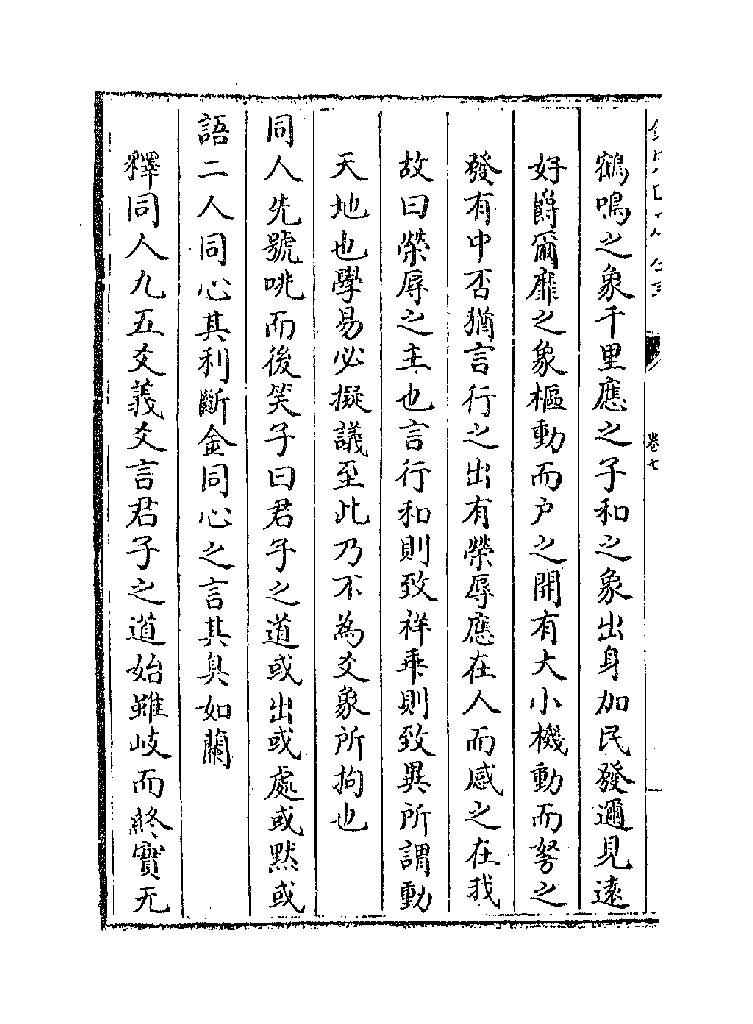 鶴鳴之象千里應之子和之象出身加民發邇見遠
好爵爾靡之象樞動而户之開有大小機動而弩之
發有中否猶言行之出有榮辱應在人而感之在我
故曰榮辱之主也言行和則致祥乖則致異所謂動
天地也學易必擬議至此乃不為爻象所拘也
同人先號咷而後笑子曰君子之道或出或處或黙或
語二人同心其利斷金同心之言其臭如蘭
釋同人九五爻義爻言君子之道始雖岐而終實无
卷七